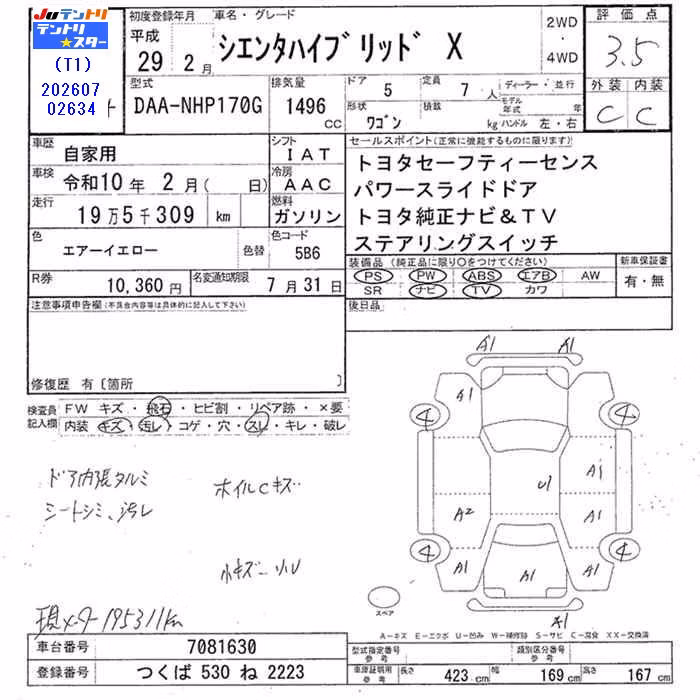 Juテントリ
テントリ
スター
(T1)
202607
02634
初度登録年月
平成
29 2月
車名・グレード
シエンタハイブリッド X
2WD
・
4WD
評価点
3.5
外装 内装
C C
型式
DAA-NHP170G
排気量
1496
CC
ドア
5
定員
7人
形状
ワゴン
積載
kg
ディーラー・並行
モデル
年式 年
ハンドル 左・右
車歴
自家用
シフト
IAT
車検
令和10年 2月( 日)
冷房
AAC
走行
19万5千309 km
燃料
ガソリン
色
エアーイエロー
色替
色コード
5B6
R券
10,360円
名変通知期限
7月31日
セールスポイント(正常に機能するものに限ります)
トヨタセーフティーセンス
パワースライドドア
トヨタ純正ナビ&TV
ステアリングスイッチ
装備品(純正品に限り○をつけてください)
PS PW ABS エアB AW
SR ナビ TV カワ
新車保証書
有・無
後日品
注意事項申告欄(不具合内容等は具体的に記入して下さい)
修復歴 有〔箇所 〕
検査員
記入欄
FW キズ・飛石・ヒビ割・リペア跡・×要
内装 キズ・汚レ・コゲ・穴・スレ・キレ・破レ
ドア内張タルミ
シートシミ、汚レ
ホイルCキズ
小キズ
現メータ 195311km
A1 A1
A1
4 4
A1
U1
A2 A1
4 4
A1 A1 A1
A1
スペア
A-キズ E-エクボ U-凹み W-補修跡 S-サビ C-腐食 XX-交換済
車台番号
7081630
登録番号
つくば 530 ね 2223
型式指定番号
参考
類別区分番号
参考
車庫証明用
参考
長さ 423 cm
幅 169 cm
高さ 167 cm